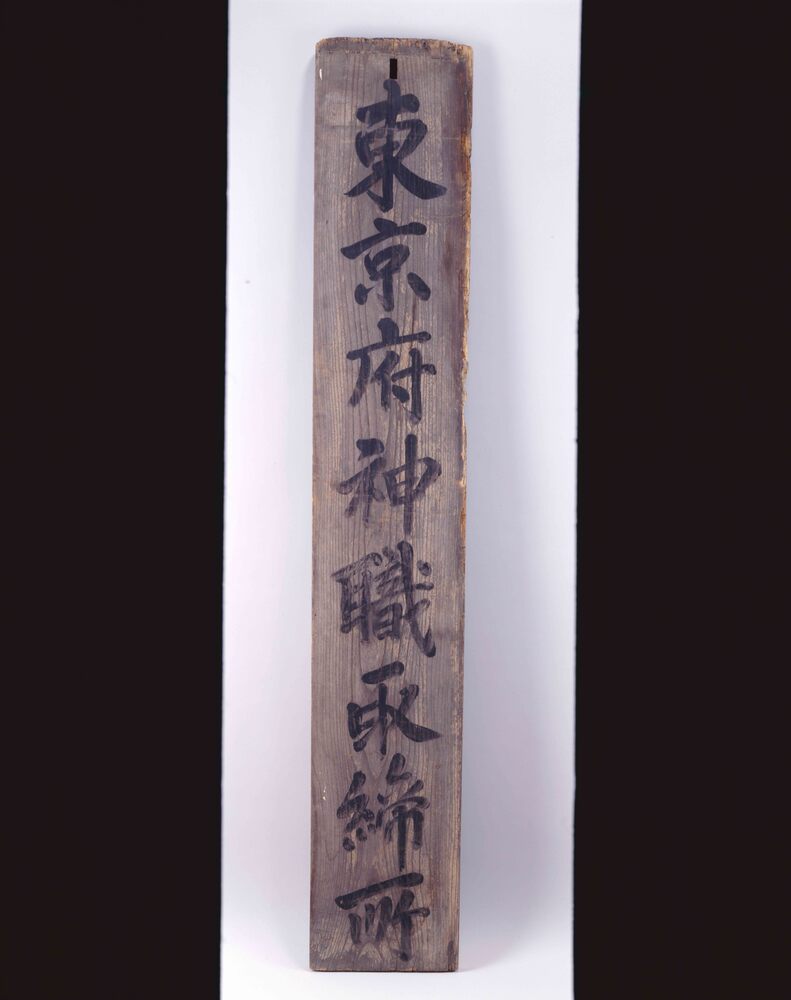 東京府神職取締所